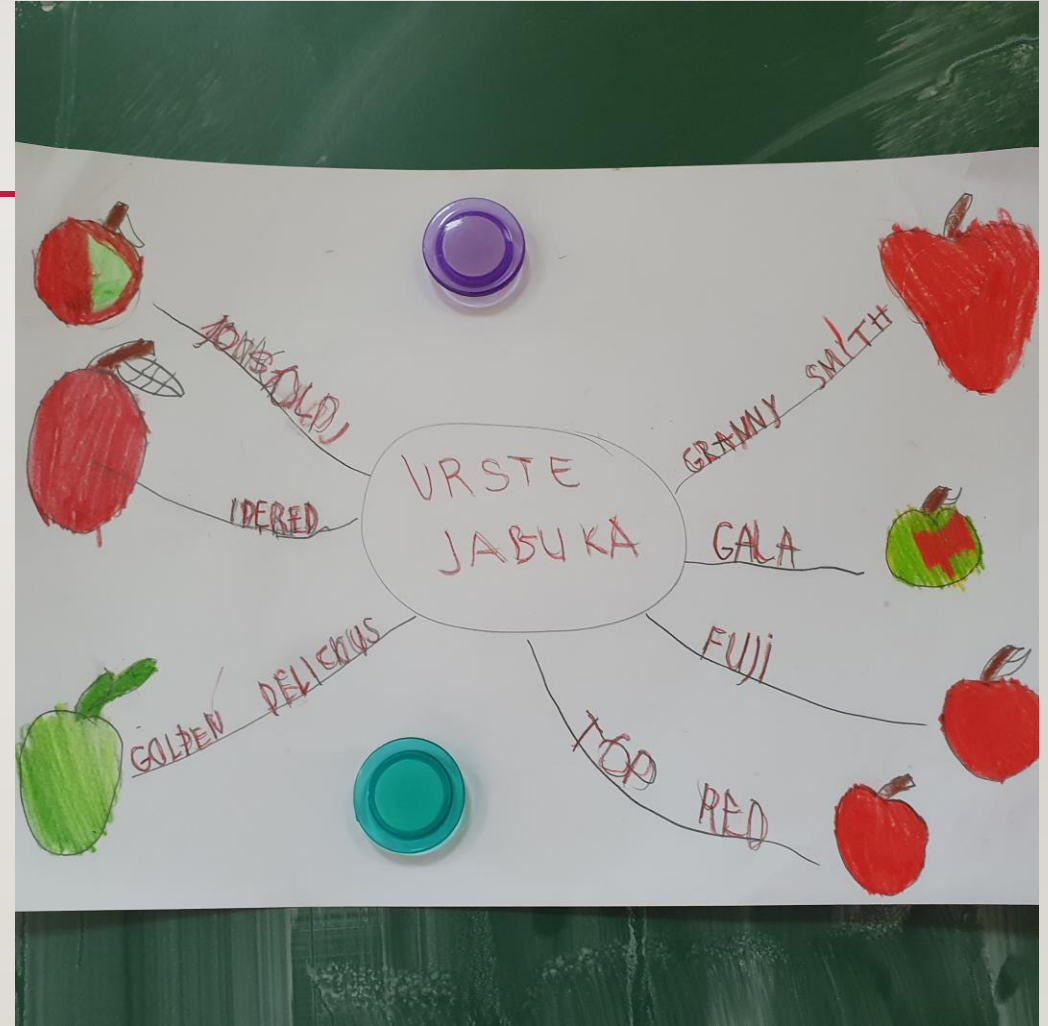 VRSTE
JABUKA
JONGOLD
IDERED
GOLDEN DELICHUS
GRANNY SMITH
GALA
FUJi
TOP RED